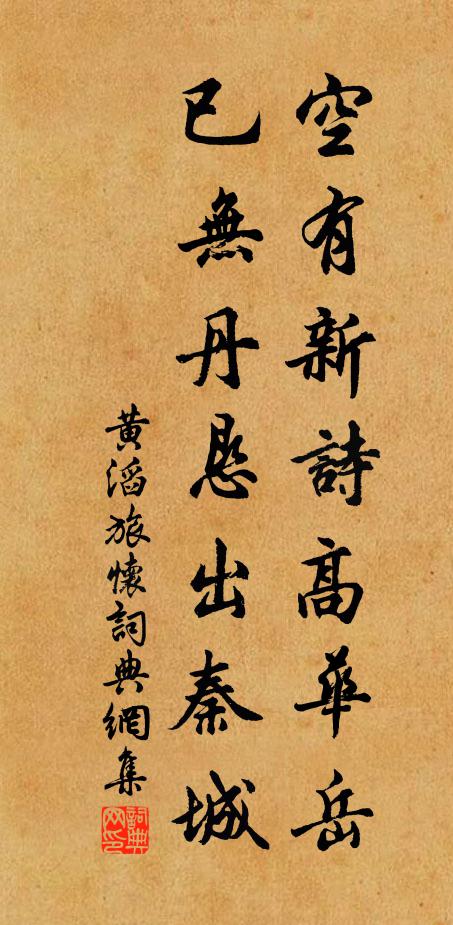 空有新詩高華岳
已無丹恳出秦城
黄滔旅懷詞典網集
詞典网印